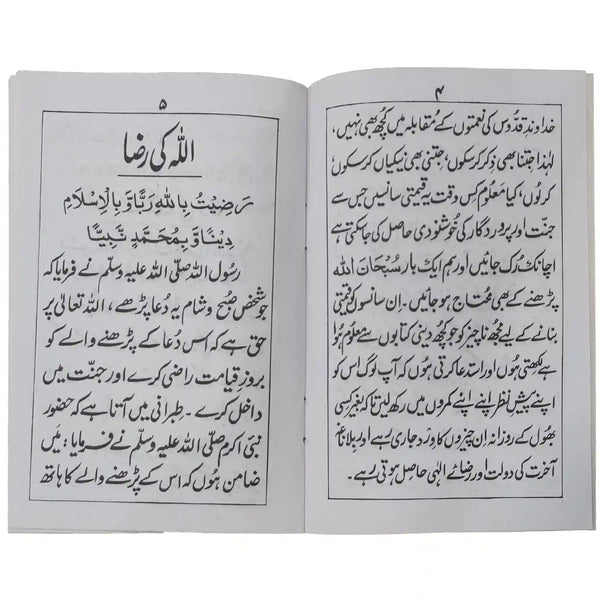 ۴
خداوندِ قدُّوس کی نعمتوں کے مُقابلہ میں کچھ بھی نہیں،
لہٰذا جتنا بھی ذِکر کرسکوں، جتنی بھی نیکیاں کرسکوں
کرلُوں، کیا معلوم کس وقت یہ قیمتی سانسیں جس سے
جنّت اور پروردگار کی خُوشنودی حاصل کی جاسکتی ہے
اچانک رُک جائیں اور ہم ایک بار سُبحَانَ اللہ
پڑھنے کے بھی محُتاج ہوجائیں۔ اِن سانسوں کو قیمتی
بنانے کے لیے مجھ ناچیز کو جو کچھ دینی کتابوں سے معلُوم ہُوا
ہے لکھتی ہُوں اور استدعا کرتی ہُوں کہ آپ لوگ اس کو
اپنے پیشِ نظر اپنے اپنے کمروں میں رکھ لیں تاکہ بغیر کسی
بھُول کے روزانہ اِن چیزوں کا وِرد جاری رہے اور بلا ناغہ
آخرت کی دولت اور رضائے الٰہی حاصل ہوتی رہے۔
۵
اللہ کی رضا
رَضِیْتُ بِاللّٰہِ رَبًّا وَّ بِالْاِسْلَامِ
دِیْنًا وَّ بِمُحَمَّدٍ نَّبِیًّا
رسول اللہ صلّی اللہ علیہ وسلّم نے فرمایا کہ
جو شخص صبح و شام یہ دُعا پڑھے، اللہ تعالیٰ پر
حق ہے کہ اس دُعا کے پڑھنے والے کو
بروزِ قیامت راضی کرے اور جنّت میں
داخل کرے۔ طبرانی میں آتا ہے کہ حضور
نبیِ اکرم صلّی اللہ علیہ وسلّم نے فرمایا: میَں
ضامن ہُوں کہ اس کے پڑھنے والے کا ہاتھ